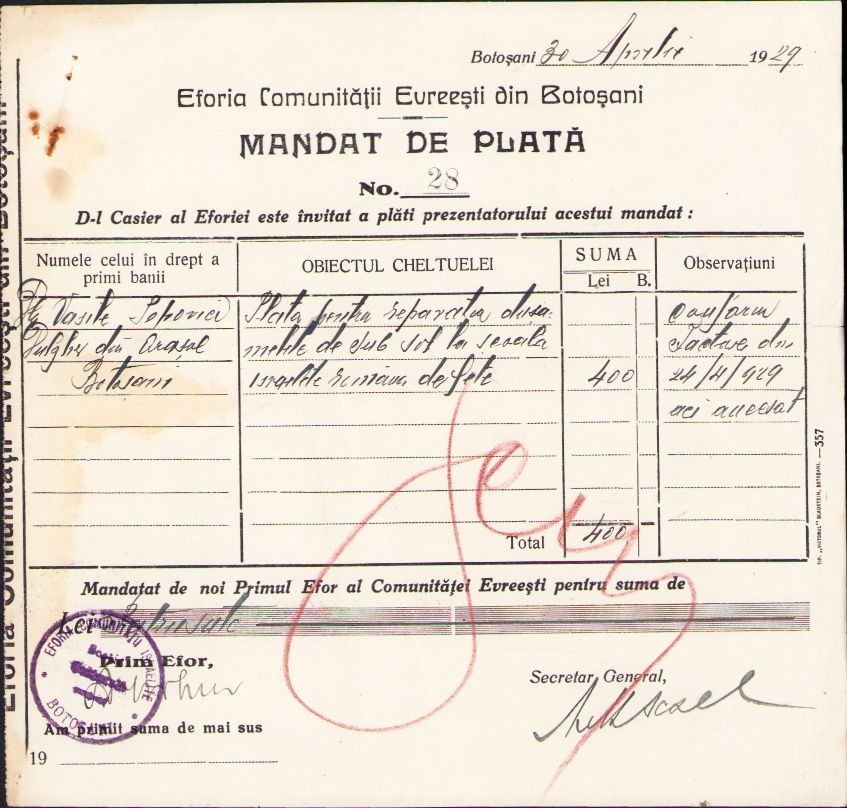 Botoșani 30 Aprilie 1929
Eforia Comunităţii Evreeşti din Botoşani
MANDAT DE PLATĂ
No. 28
D-l Casier al Eforiei este învitat a plăti prezentatorului acestui mandat :
Numele celui în drept a primi banii
OBIECTUL CHELTUELEI
SUMA
Lei B.
Observaţiuni
Vasile
din orașul
Botoșani
Plata pentru reparatul dușa-
melile de sub sol la școala
Israelito română de fete
400
Conform
facturei din
24/4/929
aci anexat
Total 400
Mandatat de noi Primul Efor al Comunităţei Evreeşti pentru suma de
Lei Patrusute
Prim Efor,
Secretar General,
EFORIA COMUNITAŢII ISRAELITE
BOTOŞANI
Am primit suma de mai sus
19
TIP. „VIITORUL" BLAUSTEIN, BOTOŞANI. —357
Eforia Comunităţii Evreeşti din Botoşani